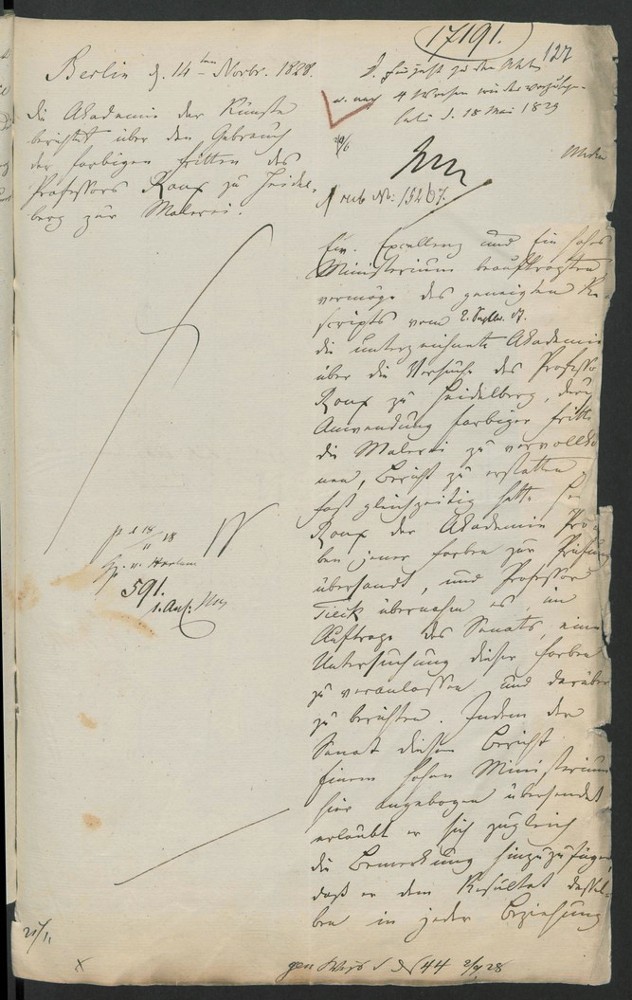 17191.
127
Berlin d. 14ten Novbr. 1828.
4 Wochen wieder
18 Mai 1829
die Akademie der Künste
berichtet über den Gebrauch
der farbigen Fritten des
Professors Roux zu Heidel-
berg zur Malerei.
No: 15267.
Ew. Excellenz und Ein hohes
Ministerium beauftragten
vermöge des geneigten Re-
scripts vom 2. Septbr. d.
die unterzeichnete Akademie
über die Versuche des Professor
Roux zu Heidelberg, durch
Anwendung farbiger Fritten
die Malerei zu vervollko
nen, Bericht zu erstatten
fast gleichzeitig hatte
Roux der Akademie Pro-
ben jener Farben zur Prüfung
übersandt, und Professor
Tieck übernahm es, im
Auftrage des Senats, eine
Untersuchung dieser Farben
zu veranlassen und darüber
zu berichten. Indem der
Senat diesen Bericht
Einem hohen Ministerium
hier angebogen übersendet
erlaubt er sich zugleich
die Bemerkung hinzuzufügen
daß er dem Resultat dessel-
ben in jeder Beziehung
18/11 18
591.
1. Anl.
21/11
44 2/9 28